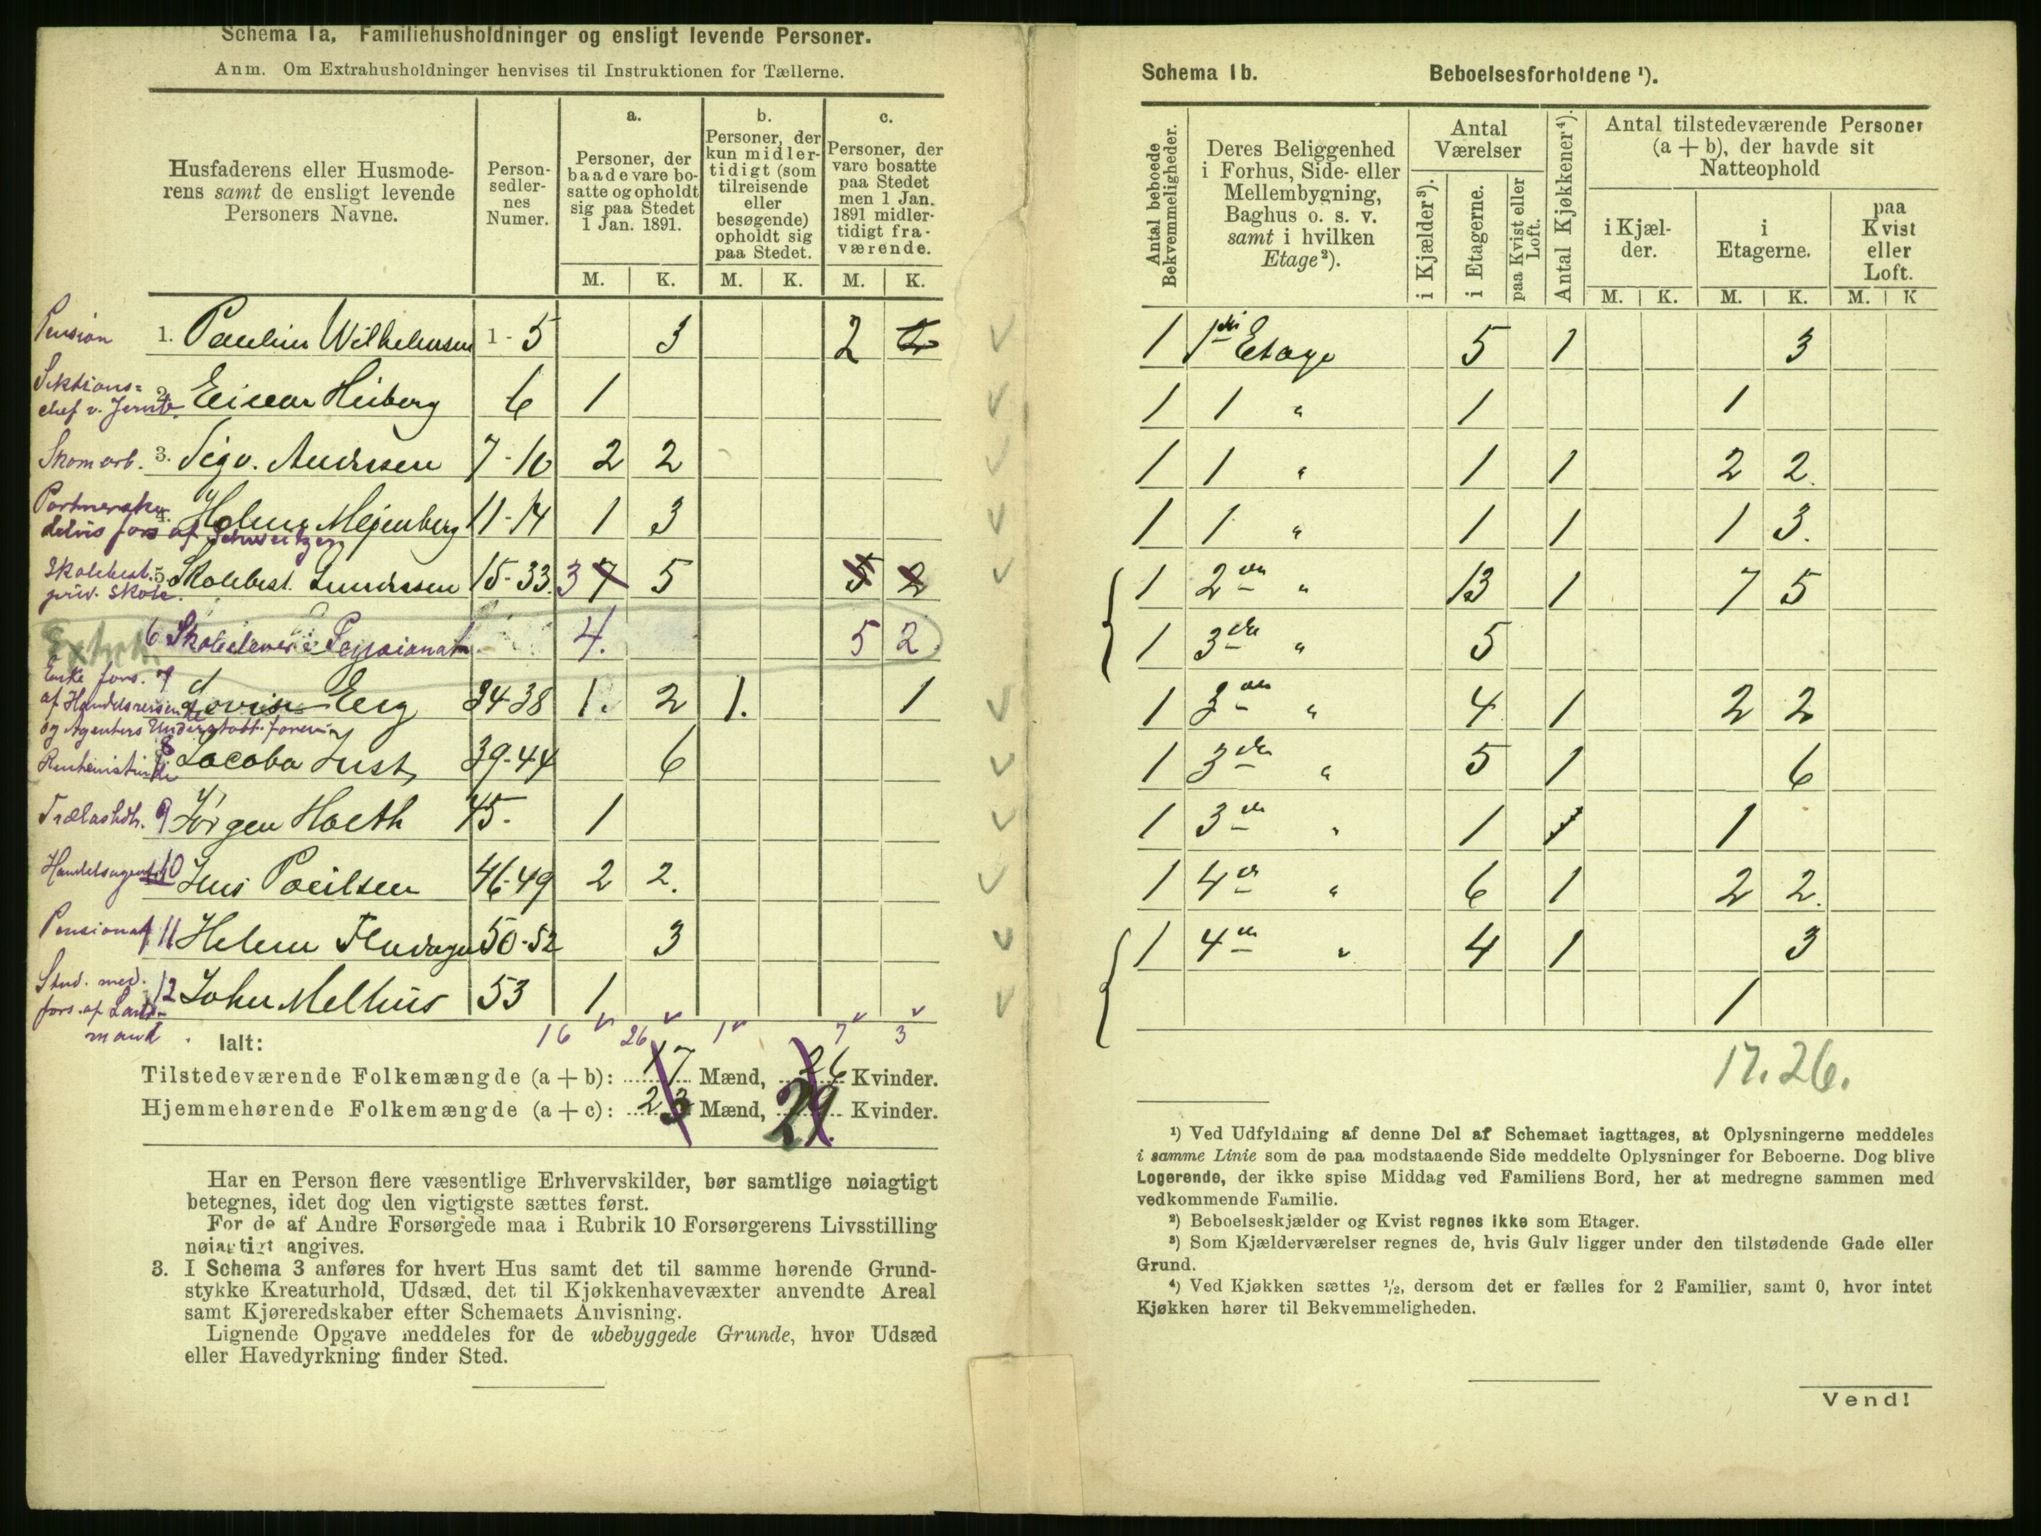 Schema 1a. Familiehusholdninger og ensligt levende Personer.
Anm. Om Extrahusholdninger henvises til Instruktionen for Tællerne.
Husfaderens eller Husmoderens samt de ensligt levende Personers Navne.
Personsedlernes Numer.
a.
Personer, der baade vare bosatte og opholdt sig paa Stedet 1 Jan. 1891.
b.
Personer, der kun midlertidigt (som tilreisende eller besøgende) opholdt sig paa Stedet.
c.
Personer, der vare bosatte paa Stedet men 1 Jan. 1891 midlertidigt fraværende.
M. K. M. K. M. K.
Pension 1. Paulin Wilhelmsen 1-5 3 2 2
Sektions=
chef v. Jernb. 2. Einar Heiberg 6 1
Skomarb. 3. Sigv. Andersen 7-10 2 2
4. Helene Mejenberg 11-14 1 3
delvis fors af
Skolebest.
priv. Skole. 5. Skolebest. 15-33. 3 7 5 5 2
Extrah. 6 Skoleelever i Pensionat. 4. 5 2
Enke fors.
af Handelsreisende
og Agenters Understøtt.foren. 7 Lovise Erg 34-38 1. 2 1. 1
8 Jacoba Just 39-44 6
Trælasthdlr. 9 Jørgen Hoeth 45. 1
Handelsagent 10 Jens Poulsen 46-49 2 2.
Pensionat 11 Helene 50-52 3
Stud. med.
fors. af Land-
mand. 12 John Melhus 53 1
16 26 1 7 3
Ialt:
Tilstedeværende Folkemængde (a + b): 17 Mænd, 26 Kvinder.
Hjemmehørende Folkemængde (a + c): 23 Mænd, 29. Kvinder.
Har en Person flere væsentlige Erhvervskilder, bør samtlige nøiagtigt
betegnes, idet dog den vigtigste sættes først.
For de af Andre Forsørgede maa i Rubrik 10 Forsørgerens Livsstilling
nøiagtigt angives.
3. I Schema 3 anføres for hvert Hus samt det til samme hørende Grund-
stykke Kreaturhold, Udsæd, det til Kjøkkenhavevæxter anvendte Areal
samt Kjøreredskaber efter Schemaets Anvisning.
Lignende Opgave meddeles for de ubebyggede Grunde, hvor Udsæd
eller Havedyrkning finder Sted.
Schema 1b. Beboelsesforholdene ¹).
Antal beboede Bekvemmeligheder.
Deres Beliggenhed i Forhus, Side- eller Mellembygning, Baghus o. s. v. samt i hvilken Etage²).
Antal Værelser
i Kjælder³).
i Etagerne.
paa Kvist eller Loft.
Antal Kjøkkener⁴).
Antal tilstedeværende Personer (a + b), der havde sit Natteophold
i Kjælder.
i Etagerne.
paa Kvist eller Loft.
M. K. M. K. M. K
1 1ste Etage 5 1 3
1 1 " 1 1
1 1 " 1 1 2 2.
1 1 " 1 1 1 3.
1 2den " 13 1 7 5
1 3die " 5
1 3die " 4 1 2 2
1 3die " 5 1 6
1 3die " 1 1 1
1 4de " 6 1 2 2.
1 4de " 4 1 3
1
17. 26.
¹) Ved Udfyldning af denne Del af Schemaet iagttages, at Oplysningerne meddeles
i samme Linie som de paa modstaaende Side meddelte Oplysninger for Beboerne. Dog blive
Logerende, der ikke spise Middag ved Familiens Bord, her at medregne sammen med
vedkommende Familie.
²) Beboelseskjælder og Kvist regnes ikke som Etager.
³) Som Kjælderværelser regnes de, hvis Gulv ligger under den tilstødende Gade eller
Grund.
⁴) Ved Kjøkken sættes ½, dersom det er fælles for 2 Familier, samt 0, hvor intet
Kjøkken hører til Bekvemmeligheden.
Vend!